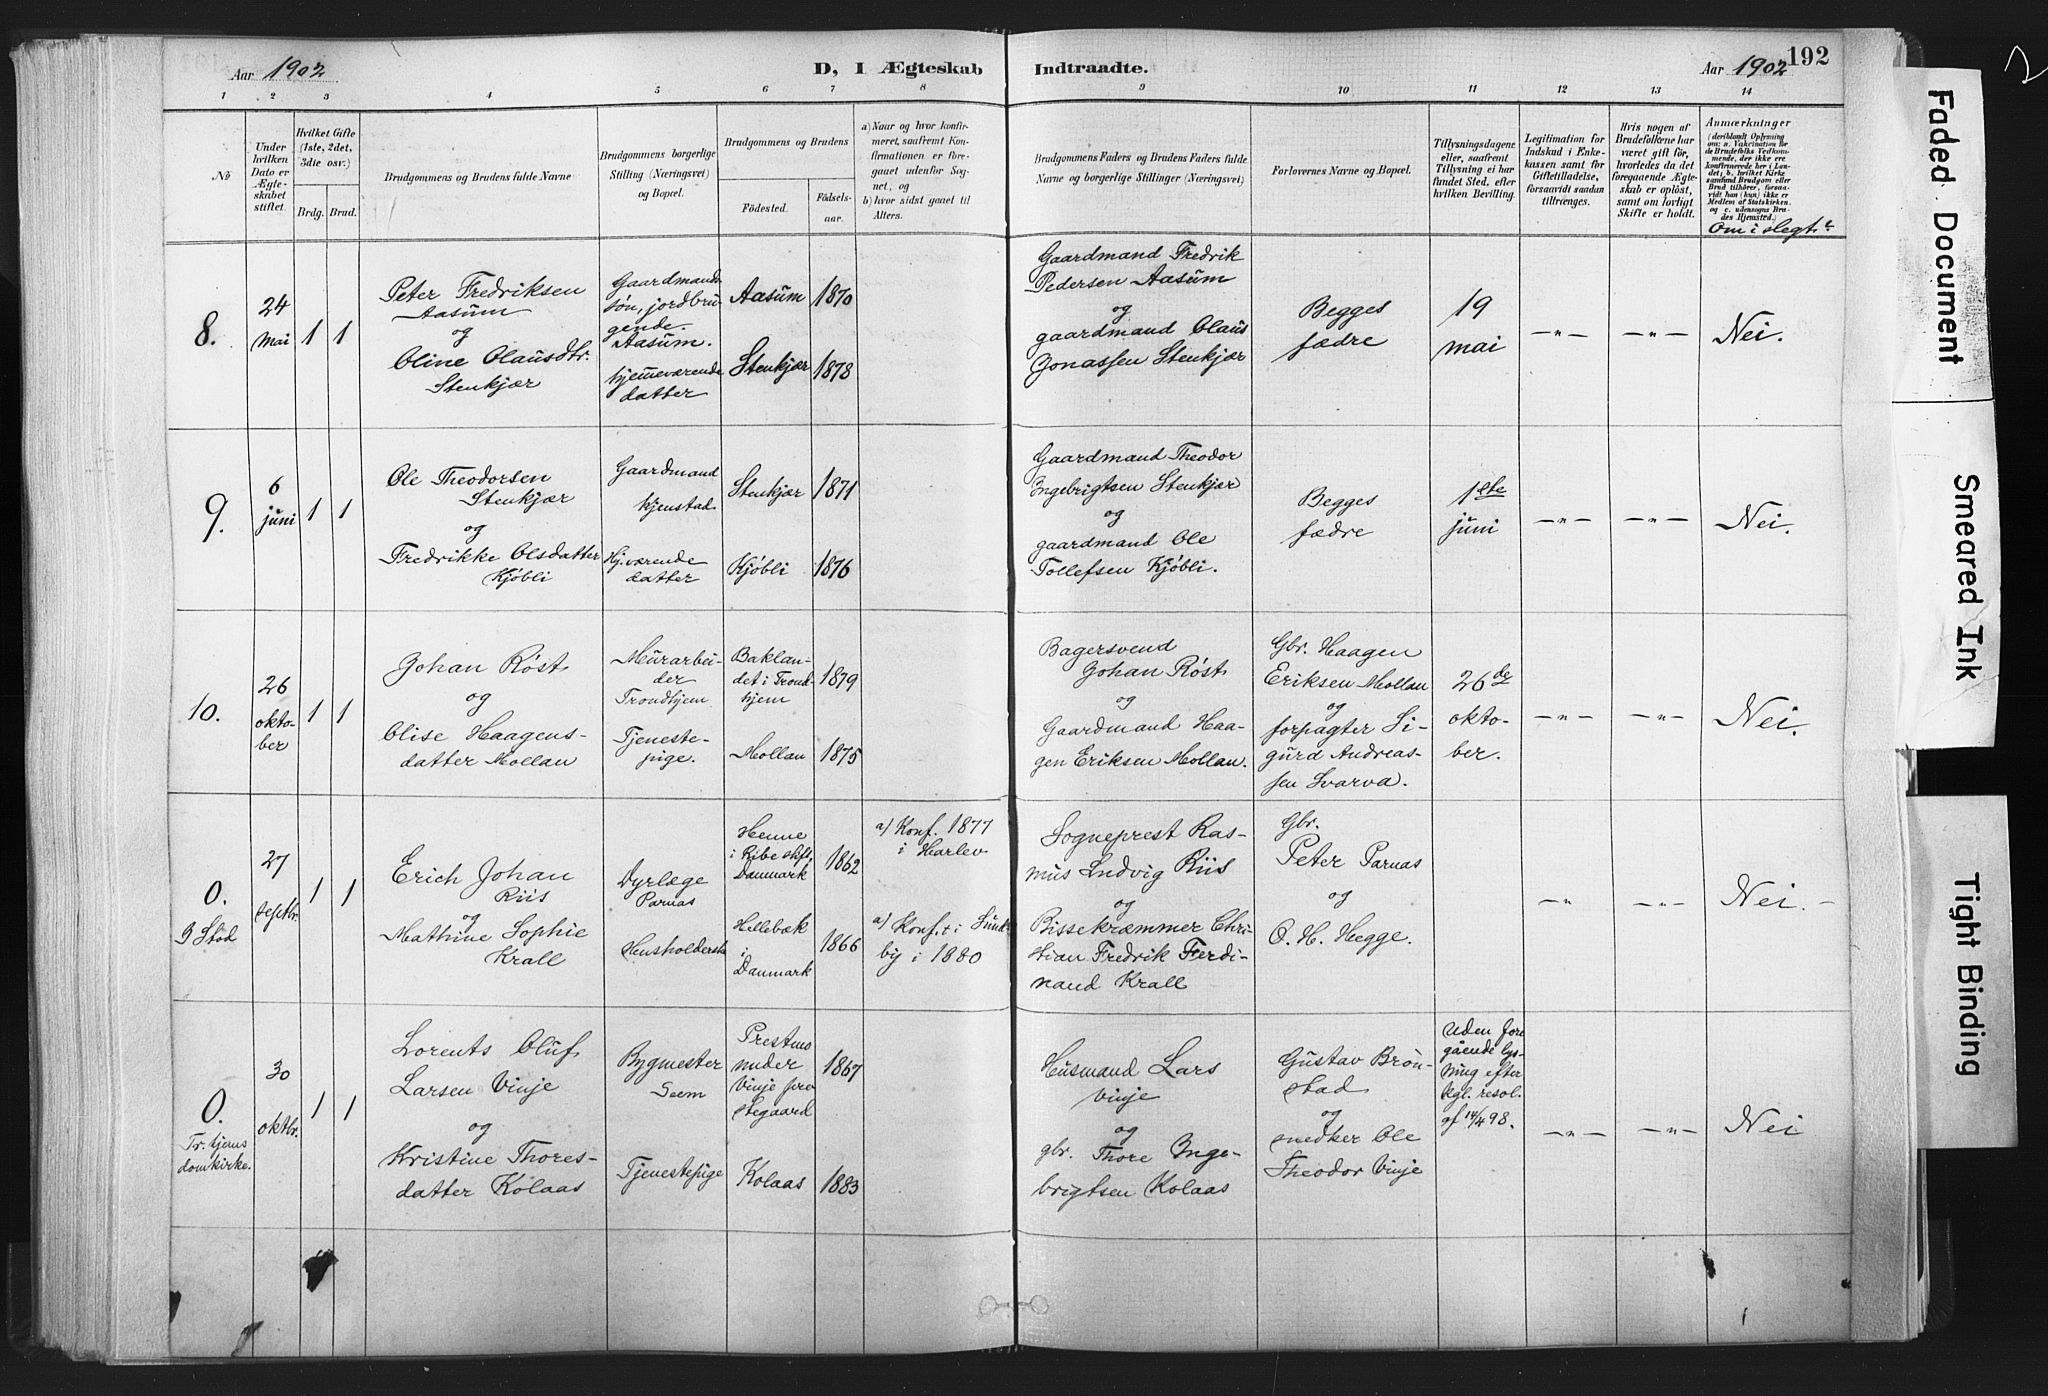 Aar 1902
D, I Ægteskab
Indtraadte.
Aar 1902
192
1 2 3 4 5 6 7 8 9 10 11 12 13 14
No
Under
hvilken
Dato er
Ægte-
skabet
stiftet.
Hvilket Gifte
(1ste, 2det,
3die osv.)
Brdg. Brud.
Brudgommens og Brudens fulde Navne
Brudgommens borgerlige
Stilling (Næringsvei)
og Bopæl.
Brudgommens og Brudens
Fødested.
Fødsels-
aar.
a) Naar og hvor konfir-
meret, saafremt Kon-
firmationen er fore-
gaaet udenfor Sog-
net, og
b) hvor sidst gaaet til
Alters.
Brudgommens Faders og Brudens Faders fulde
Navne og borgerlige Stillinger (Næringsvei)
Forlovernes Navne og Bopæl.
Tillysningsdagene
eller, saafremt
Tillysning ei har
fundet Sted, efter
hvilken Bevilling.
Legitimation for
Indskud i Enke-
kassen samt for
Giftetilladelse,
forsaavidt saadan
tiltrænges.
Hvis nogen af
Brudefolkene har
været gift før,
hvorledes da det
foregaaende Ægte-
skab er opløst,
samt om lovligt
Skifte er holdt.
Anmærkninger
(deriblandt Oplysning
om: a. Vakcination for
de Brudefolks Vedkom-
mende, der ikke ere
konfirmerede her i Lan-
det; b. hvilket Kirke-
samfund Brudgom eller
Brud tilhører, forsaa-
vidt han (hun) ikke er
Medlem af Statskirken,
og c. udensogns Bru-
des Hjemsted.)
Om i slegt?
8.
24
Mai
1 1
Peter Fredriksen
Aasum
og
Oline Olausdtr.
Stenkjær
Gaardmands
søn, jordbru
gende.
Aasum.
hjemmeværende
datter
Aasum 1870
Stenkjær 1878
Gaardmand Fredrik
Pedersen Aasum
og
gaardmand Olaus
Jonassen Stenkjær
Begges
fædre
19
mai
—„— —„— Nei.
9.
6
juni
1 1
Ole Theodorsen
Stenkjær
og
Fredrikke Olsdatter
Kjøbli
Gaardmand
Kjenstad
Hj.værende
datter
Stenkjær 1871
Kjøbli 1876
Gaardmand Theodor
Ingebrigtsen Stenkjær
og
gaardmand Ole
Tollefsen Kjøbli.
Begges
fædre
1ste
juni
—„— —„— Nei.
10.
26
okto-
ber
1 1
Johan Røst
og
Olise Haagens-
datter Mollan
Murarbei-
der
Trondhjem
Tjeneste-
pige.
Baklan-
det i Trond-
hjem
1879
Mollan 1875
Bagersvend
Johan Røst
og
Gaardmand Haa-
gen Eriksen Mollan.
Gbr. Haagen
Eriksen Mollan
og
forpagter Si-
gurd Andreas-
sen Svarva.
26de
okto-
ber.
—„— —„— Nei.
0.
I Stod
27
septbr.
1 1
Erich Johan
Riis
og
Mathine Sophie
Krall
Dyrlæge
Parnas
Husholderske
Henne
i Ribe stift,
Danmark
1862
Hellebæk
i
Danmark
1866
a) Konf. 1877
i Harlev
a) Konf. i Sund
by i 1880
Sogneprest Ras-
mus Ludvig Riis
og
Bissekræmmer Chri-
stian Fredrik Ferdi-
nand Krall
Gbr.
Peter Parnas
og
O. H. Hegge.
—„— —„— Nei. —
0.
Tr.hjems
domkirke.
30
oktbr.
1 1
Lorents Oluf
Larsen Vinje
og
Kristine Thores-
datter Kolaas
Bygmester
Seem
Tjenestepige
Prestmo
under
Vinje pre
stegaard
1867
Kolaas 1883
Husmand Lars
Vinje
og
gbr. Thore Inge-
brigtsen Kolaas
Gustav Brøn-
stad
og
snedker Ole
Theodor Vinje
Uden fore
gående lys-
ning efter
kgl. resol.
af 14/4 98.
—„— —„— Nei
Faded Document
Smeared Ink
Tight Binding